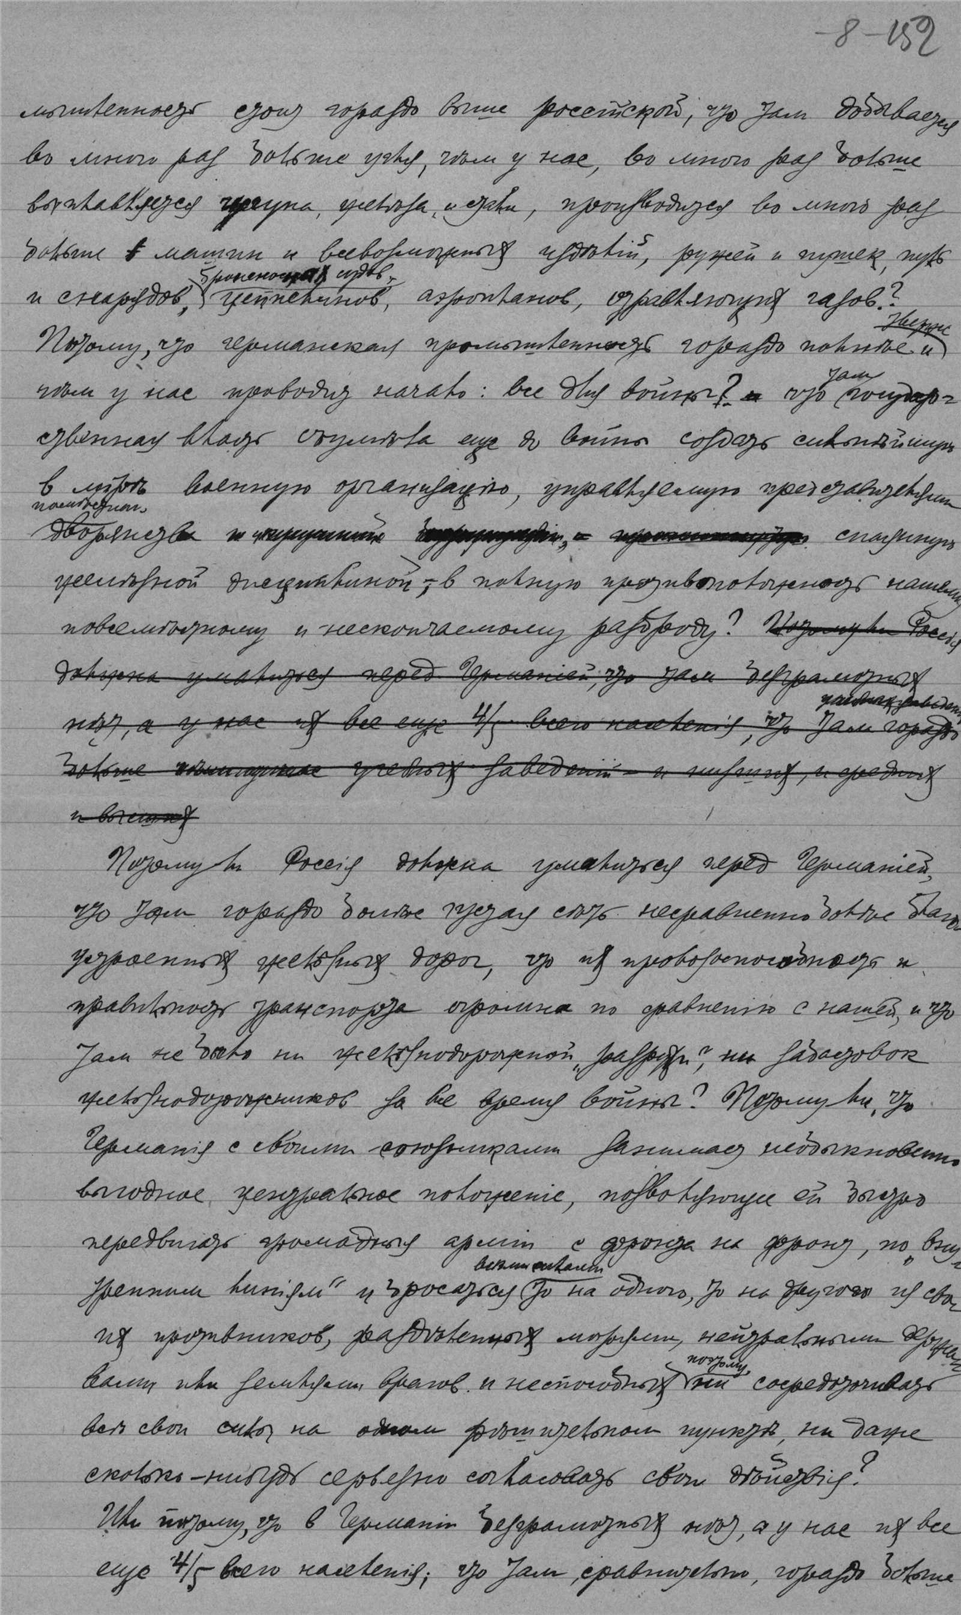 -8- 152
мышленность стоит гораздо выше российской, что там добывается
во много раз больше угля, чем у нас, во много раз больше
выплавляется чугуна, железа, и стали, производится во много раз
больше машин и всевозможных изделий, ружей и пушек, пуль
броненосных судов,
и снарядов, цеппелинов, аэропланов, отравляющих газов?
Потому, что германская промышленность гораздо полнее и
чем у нас проводит начало: все для войны? что там государ-
ственная власть сумела еще до войны создать сильнейшую
в мірѣ военную организацию, управляемую представителями
поместнаго
дворянства спаянную
железной дисциплиной, - в полную противоположность нашему
повсеместному и нескончаемому разброду? Потому ли Россія
должна умалиться перед Германіей, что там безграмотных
нѣт, а у нас их все еще 4/5 всего населенія, что там гораздо
больше учебных заведеній - и низших, и средних
и высших
Потому ли Россія должна умалиться перед Германіей,
что там гораздо более густая сеть несравненно более благо-
устроенных желѣзных дорог, что их провозоспособность и
правильность транспорта огромна по сравнению с нашей, и что
там не было ни желѣзнодорожной „разрухи", ни забастовок
желѣзнодорожников за все время войны? Потому ли, что
Германія с своими союзниками занимает необыкновенно
выгодное центральное положеніе, позволяющее ей быстро
передвигать громадныя арміи с фронта на фронт, по „внут-
всеми силами
ренним линіям" и бросаться то на одного, то на другого из сво-
их противников, разделенных морями, нейтральными держа-
поэтому
вами или землями врагов и неспособных ни сосредоточивать
всѣ свои силы на одном рѣшительном пунктѣ, ни даже
сколько-нибудь серьезно согласовать свои дѣйствія?
Или потому, что в Германіи безграмотных нѣт, а у нас их все
еще 4/5 всего населенія; что там, сравнительно, гораздо больше